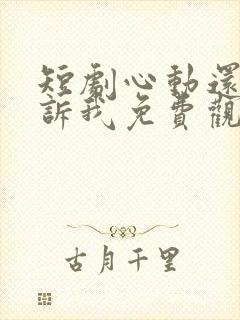 短劇心動還
訴我免費觀
古月千里